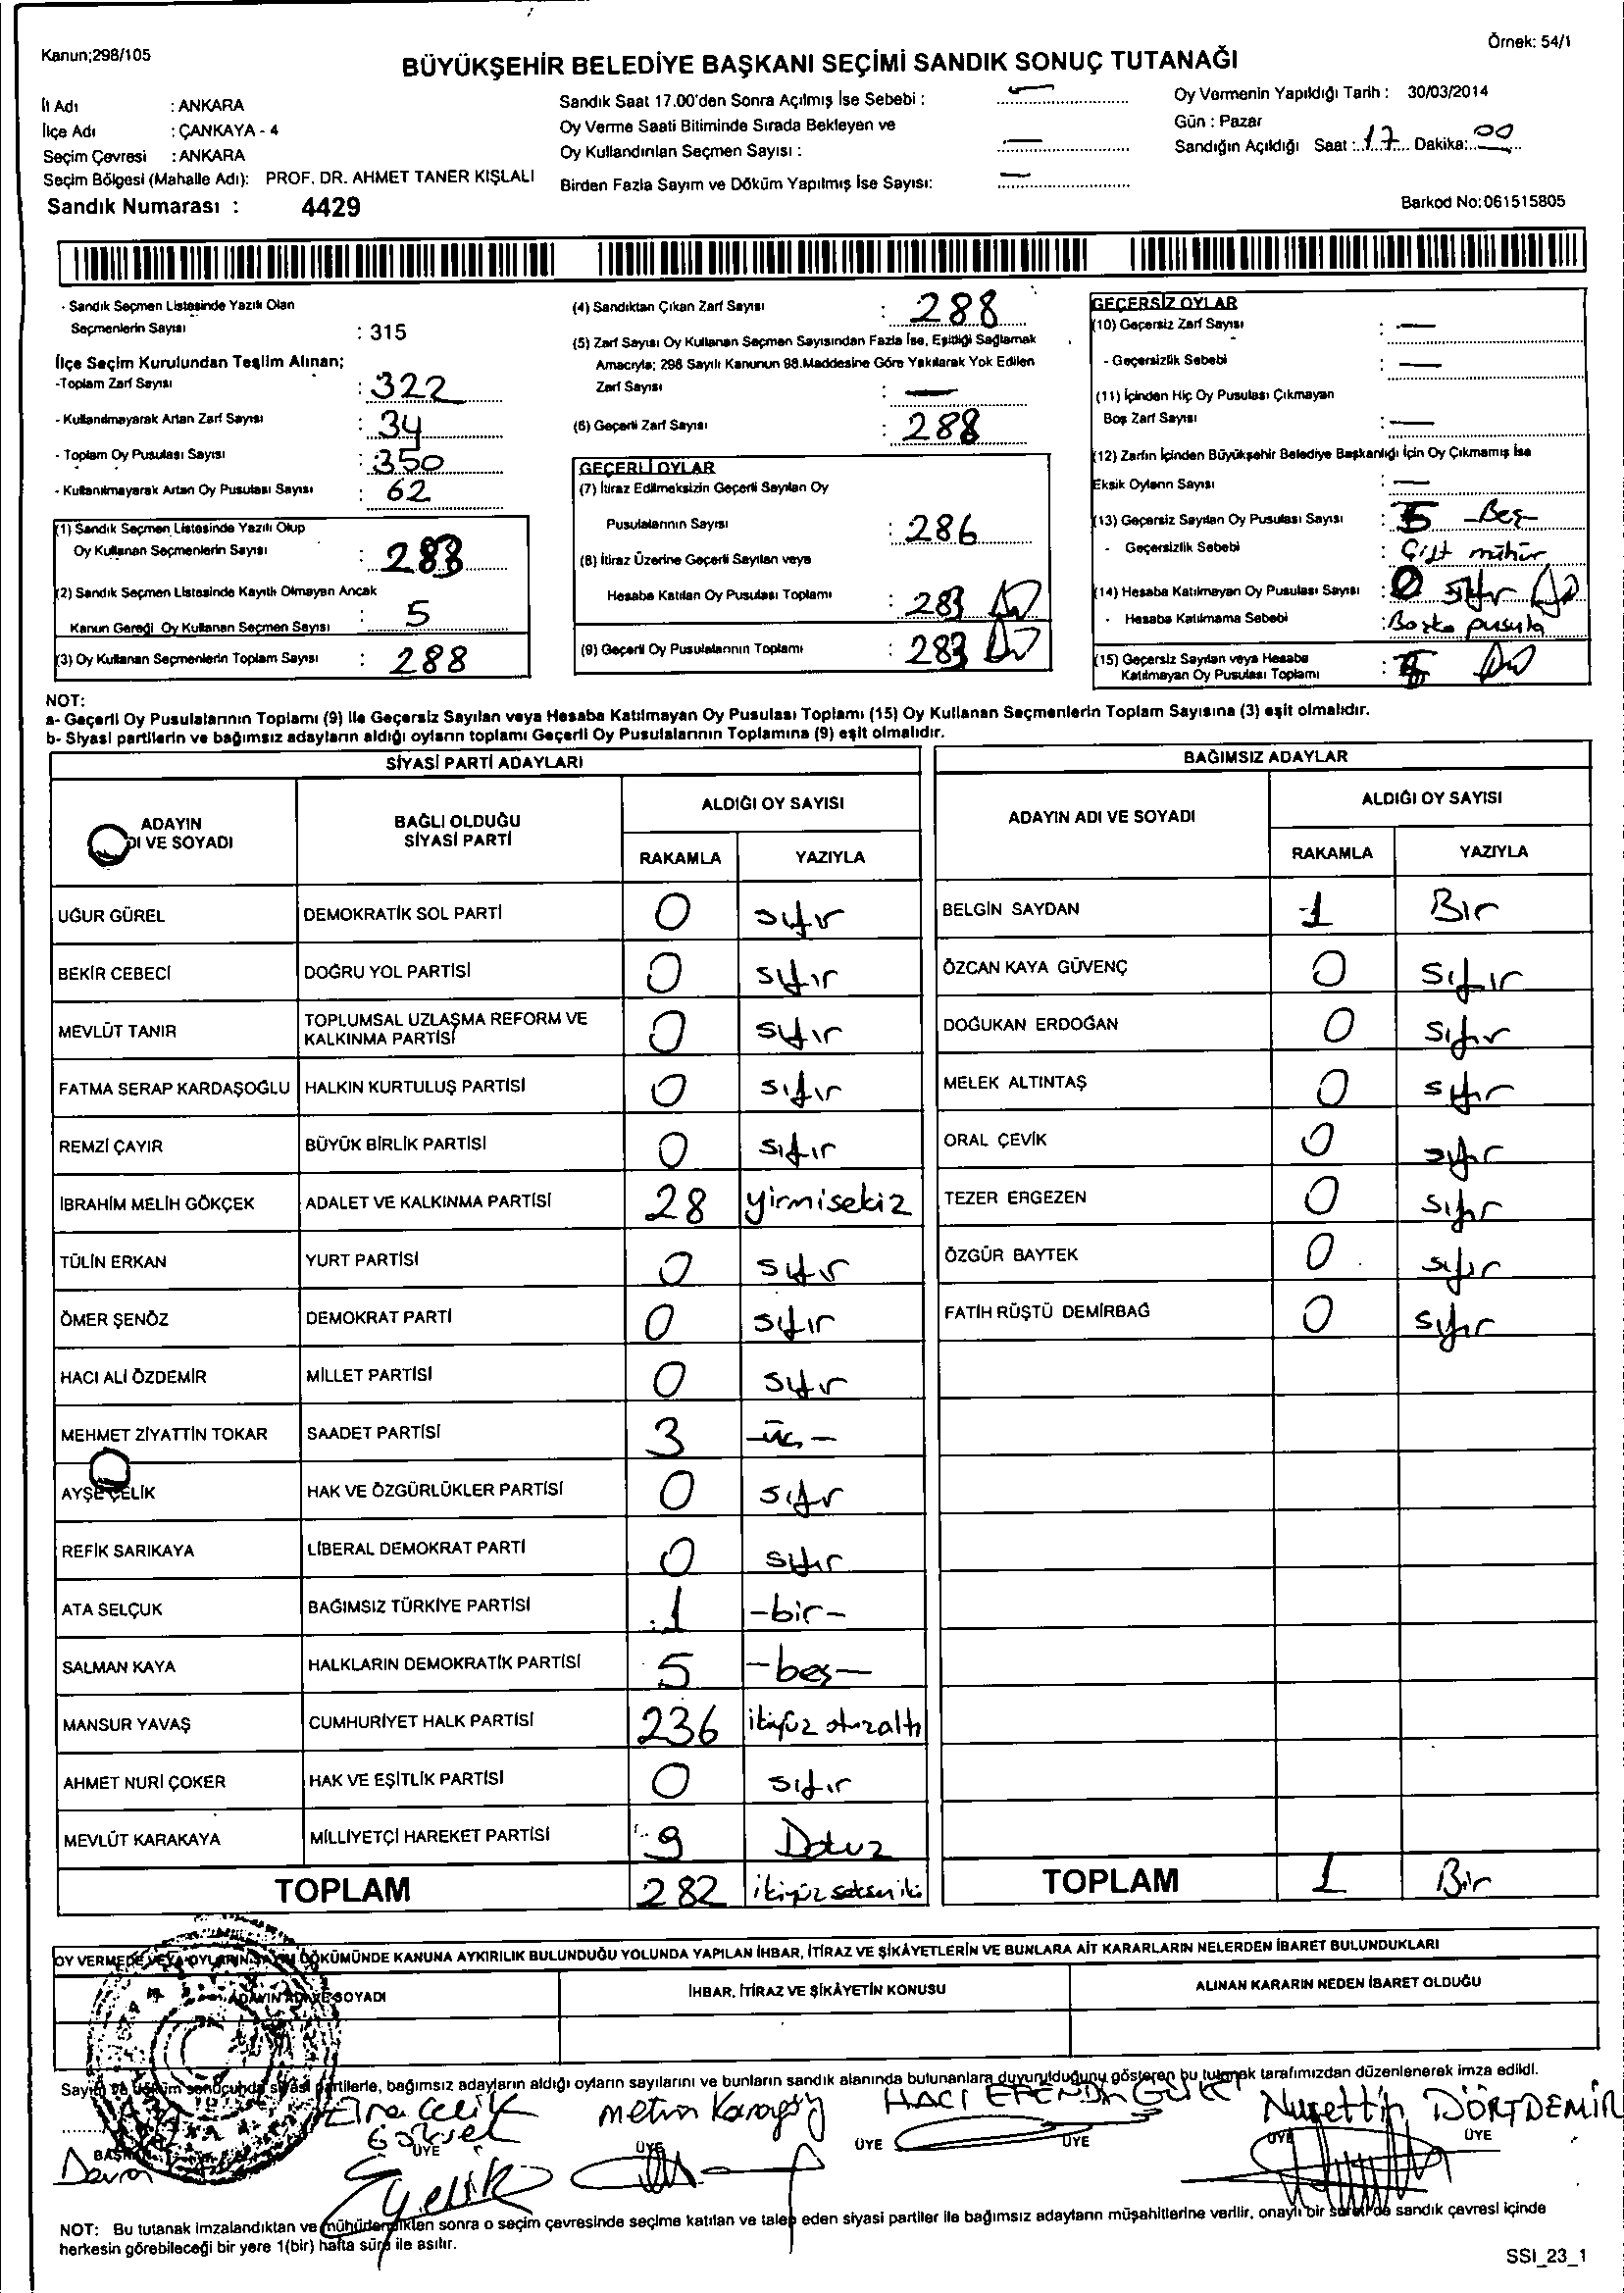 Kanun;298/105
Örnek: 54/1
BÜYÜKŞEHİR BELEDİYE BAŞKANI SEÇİMİ SANDIK SONUÇ TUTANAĞI
İl Adı : ANKARA
İlçe Adı : ÇANKAYA - 4
Seçim Çevresi : ANKARA
Seçim Bölgesi (Mahalle Adı): PROF. DR. AHMET TANER KIŞLALI
Sandık Numarası : 4429
Sandık Saat 17.00'den Sonra Açılmış İse Sebebi : —
Oy Verme Saati Bitiminde Sırada Bekleyen ve
Oy Kullandırılan Seçmen Sayısı : —
Birden Fazla Sayım ve Döküm Yapılmış İse Sayısı: —
Oy Vermenin Yapıldığı Tarih : 30/03/2014
Gün : Pazar
Sandığın Açıldığı Saat : 17 Dakika: 00
Barkod No:061515805
- Sandık Seçmen Listesinde Yazılı Olan
Seçmenlerin Sayısı : 315
İlçe Seçim Kurulundan Teslim Alınan;
-Toplam Zarf Sayısı : 322
- Kullanılmayarak Artan Zarf Sayısı : 34
- Toplam Oy Pusulası Sayısı : 350
- Kullanılmayarak Artan Oy Pusulası Sayısı : 62
(1) Sandık Seçmen Listesinde Yazılı Olup
Oy Kullanan Seçmenlerin Sayısı : 283
(2) Sandık Seçmen Listesinde Kayıtlı Olmayan Ancak
Kanun Gereği Oy Kullanan Seçmen Sayısı : 5
(3) Oy Kullanan Seçmenlerin Toplam Sayısı : 288
(4) Sandıktan Çıkan Zarf Sayısı : 288
(5) Zarf Sayısı Oy Kullanan Seçmen Sayısından Fazla İse, Eşitliği Sağlamak
Amacıyla; 298 Sayılı Kanunun 98.Maddesine Göre Yakılarak Yok Edilen
Zarf Sayısı : —
(6) Geçerli Zarf Sayısı : 288
GEÇERLİ OYLAR
(7) İtiraz Edilmeksizin Geçerli Sayılan Oy
Pusulalarının Sayısı : 286
(8) İtiraz Üzerine Geçerli Sayılan veya
Hesaba Katılan Oy Pusulası Toplamı : 283
(9) Geçerli Oy Pusulalarının Toplamı : 283
GEÇERSİZ OYLAR
(10) Geçersiz Zarf Sayısı : —
- Geçersizlik Sebebi : —
(11) İçinden Hiç Oy Pusulası Çıkmayan
Boş Zarf Sayısı : —
(12) Zarfın İçinden Büyükşehir Belediye Başkanlığı İçin Oy Çıkmamış İse
Eksik Oyların Sayısı : —
(13) Geçersiz Sayılan Oy Pusulası Sayısı : 5 -Beş-
- Geçersizlik Sebebi : Çift mühür
(14) Hesaba Katılmayan Oy Pusulası Sayısı : 0 sıfır
- Hesaba Katılmama Sebebi : Başka pusula
(15) Geçersiz Sayılan veya Hesaba
Katılmayan Oy Pusulası Toplamı : 5
NOT:
a- Geçerli Oy Pusulalarının Toplamı (9) ile Geçersiz Sayılan veya Hesaba Katılmayan Oy Pusulası Toplamı (15) Oy Kullanan Seçmenlerin Toplam Sayısına (3) eşit olmalıdır.
b- Siyasi partilerin ve bağımsız adayların aldığı oyların toplamı Geçerli Oy Pusulalarının Toplamına (9) eşit olmalıdır.
SİYASİ PARTİ ADAYLARI
ADAYIN BAĞLI OLDUĞU ALDIĞI OY SAYISI
DI VE SOYADI SİYASİ PARTİ RAKAMLA YAZIYLA
UĞUR GÜREL DEMOKRATİK SOL PARTİ 0 sıfır
BEKİR CEBECİ DOĞRU YOL PARTİSİ 0 sıfır
MEVLÜT TANIR TOPLUMSAL UZLAŞMA REFORM VE KALKINMA PARTİSİ 0 sıfır
FATMA SERAP KARDAŞOĞLU HALKIN KURTULUŞ PARTİSİ 0 sıfır
REMZİ ÇAYIR BÜYÜK BİRLİK PARTİSİ 0 sıfır
İBRAHİM MELİH GÖKÇEK ADALET VE KALKINMA PARTİSİ 28 yirmisekiz
TÜLİN ERKAN YURT PARTİSİ 0 sıfır
ÖMER ŞENÖZ DEMOKRAT PARTİ 0 sıfır
HACI ALİ ÖZDEMİR MİLLET PARTİSİ 0 sıfır
MEHMET ZİYATTİN TOKAR SAADET PARTİSİ 3 -üç-
AYŞE ÇELİK HAK VE ÖZGÜRLÜKLER PARTİSİ 0 sıfır
REFİK SARIKAYA LİBERAL DEMOKRAT PARTİ 0 sıfır
ATA SELÇUK BAĞIMSIZ TÜRKİYE PARTİSİ 1 -bir-
SALMAN KAYA HALKLARIN DEMOKRATİK PARTİSİ 5 -beş-
MANSUR YAVAŞ CUMHURİYET HALK PARTİSİ 236 ikiyüz otuzaltı
AHMET NURİ ÇOKER HAK VE EŞİTLİK PARTİSİ 0 sıfır
MEVLÜT KARAKAYA MİLLİYETÇİ HAREKET PARTİSİ 9 Dokuz
TOPLAM 282 ikiyüz seksen iki
BAĞIMSIZ ADAYLAR
ADAYIN ADI VE SOYADI ALDIĞI OY SAYISI
RAKAMLA YAZIYLA
BELGİN SAYDAN 1 Bir
ÖZCAN KAYA GÜVENÇ 0 sıfır
DOĞUKAN ERDOĞAN 0 sıfır
MELEK ALTINTAŞ 0 sıfır
ORAL ÇEVİK 0 sıfır
TEZER ERGEZEN 0 sıfır
ÖZGÜR BAYTEK 0 sıfır
FATİH RÜŞTÜ DEMİRBAĞ 0 sıfır
TOPLAM 1 Bir
OY VERMEDE VEYA OYLARIN SAYIM DÖKÜMÜNDE KANUNA AYKIRILIK BULUNDUĞU YOLUNDA YAPILAN İHBAR, İTİRAZ VE ŞİKÂYETLERİN VE BUNLARA AİT KARARLARIN NELERDEN İBARET BULUNDUKLARI
ADAYIN ADI VE SOYADI İHBAR, İTİRAZ VE ŞİKÂYETİN KONUSU ALINAN KARARIN NEDEN İBARET OLDUĞU
Sayım ve döküm sonucunda siyasi partilerle, bağımsız adayların aldığı oyların sayılarını ve bunların sandık alanında bulunanlara duyurulduğunu gösteren bu tutanak tarafımızdan düzenlenerek imza edildi.
Çelik Metin HACI EFENDİ Nurettin DÖRTDEMİR
Göksel
BAŞKAN ÜYE ÜYE ÜYE ÜYE ÜYE ÜYE
NOT: Bu tutanak imzalandıktan ve mühürlendikten sonra o seçim çevresinde seçime katılan ve talep eden siyasi partiler ile bağımsız adayların müşahitlerine verilir, onaylı bir sureti de sandık çevresi içinde
herkesin görebileceği bir yere 1(bir) hafta süre ile asılır.
SSI_23_1